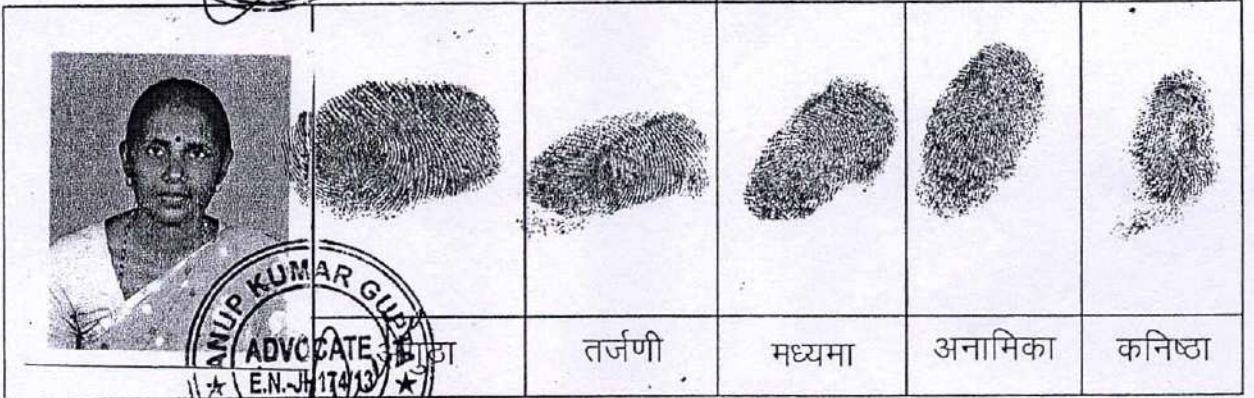 ANUP KUMAR GUPTA
ADVOCATE
E.N.-JH174/13
तर्जणी
मध्यमा
अनामिका
कनिष्ठा